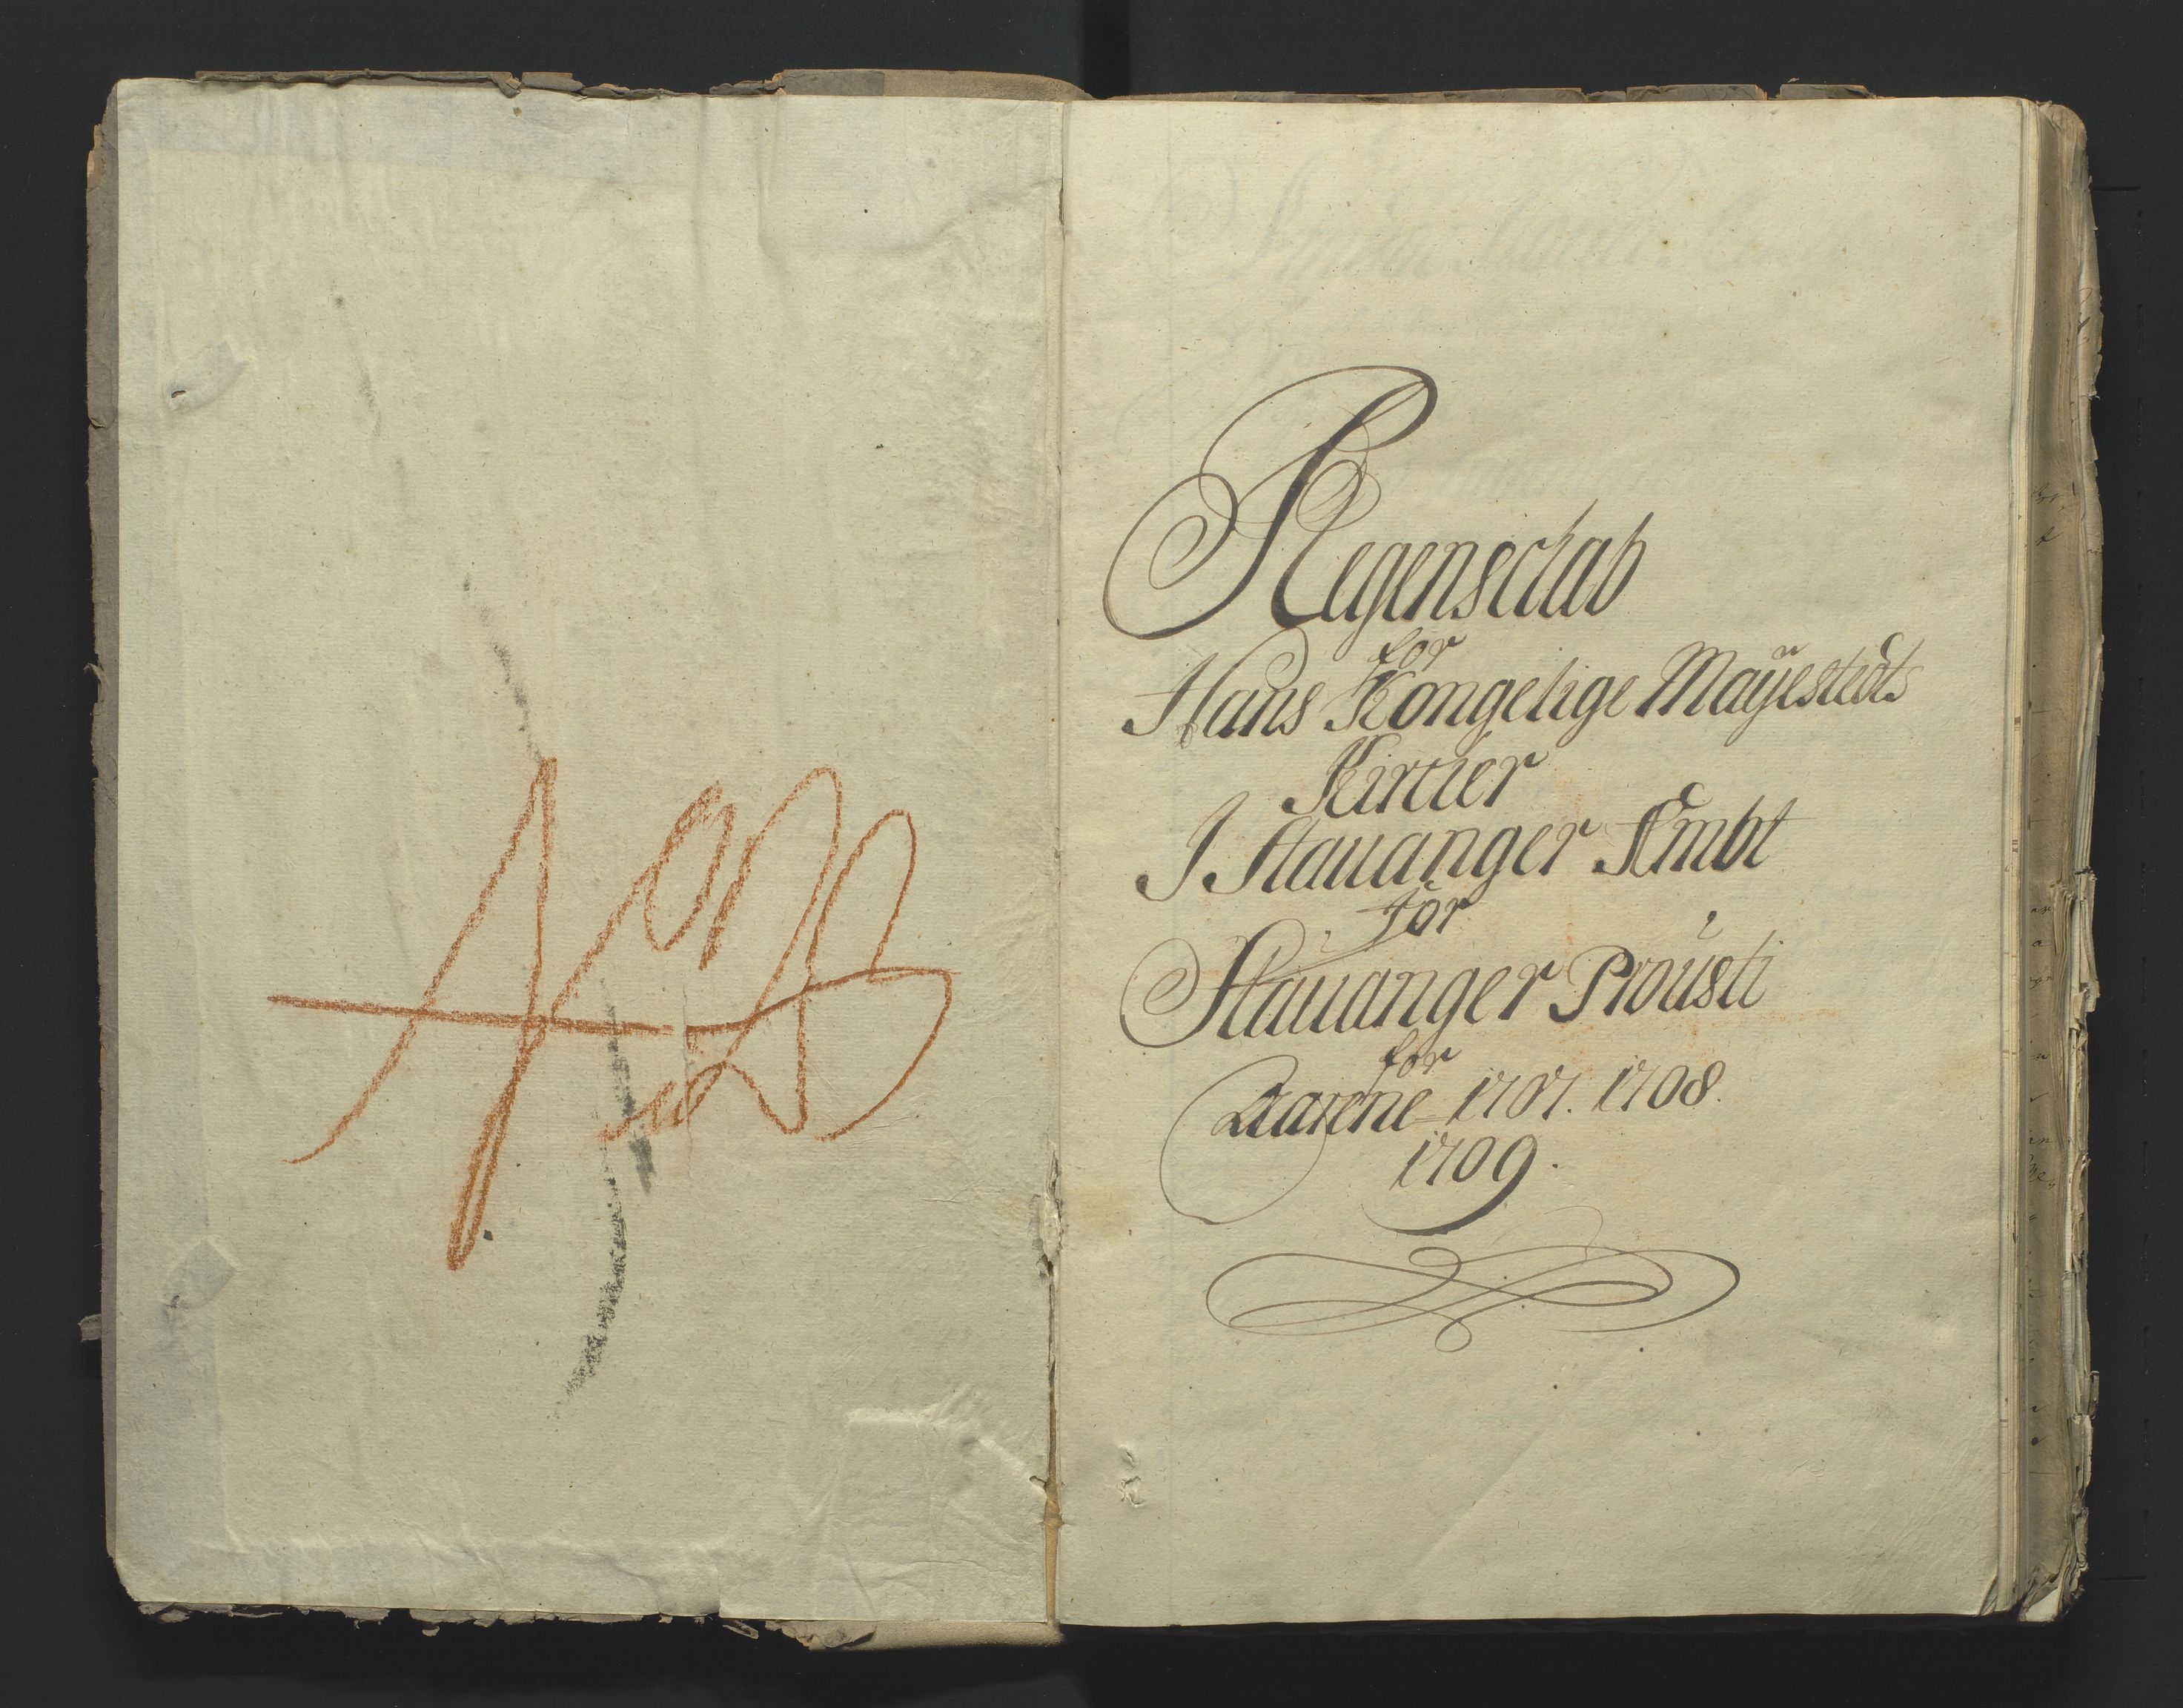 Regenschab
for
Hans Kongelige Mayestedts
Kircker
I Stauanger Ambt
For
Stauanger Prousti
for
Aarene 1707. 1708.
1709.